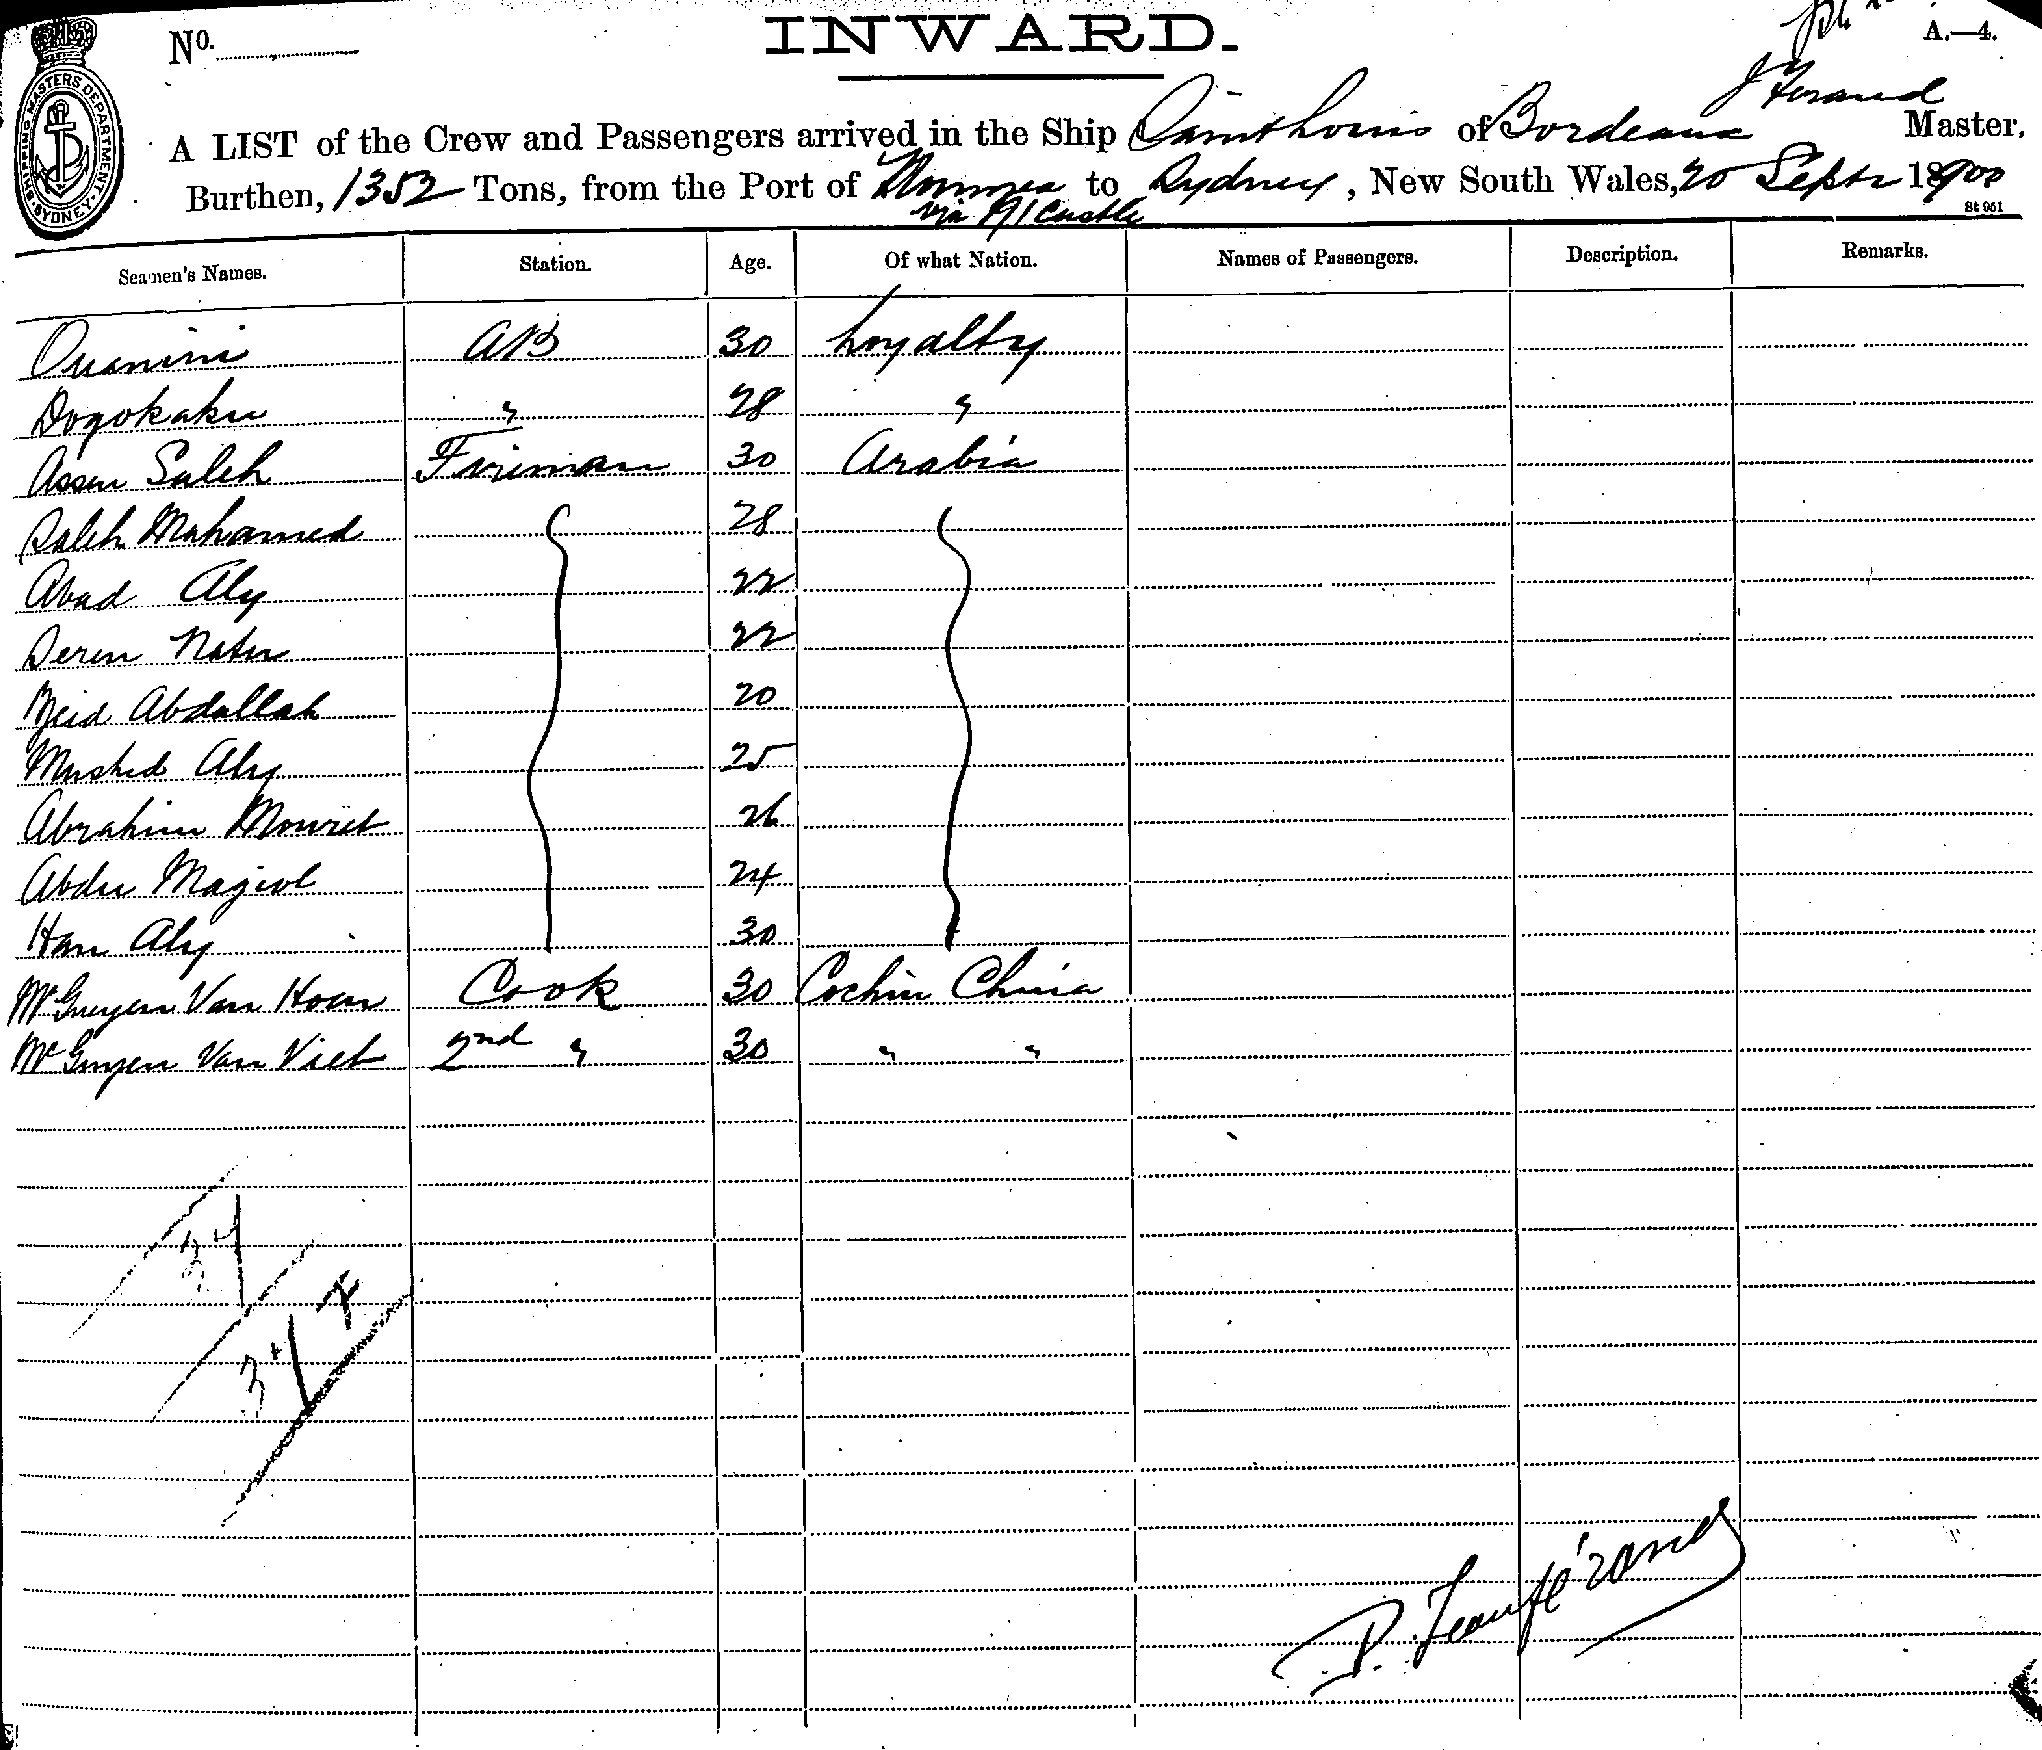 No.
INWARD.
A.—4.
SHIPPING MASTERS DEPARTMENT. SYDNEY.
J Ferand
A LIST of the Crew and Passengers arrived in the Ship of Bordeaux Master,
Burthen, 1352 Tons, from the Port of Noumea to Sydney, New South Wales, 20 Septr 1900
via N/Castle
St 951
Seamen's Names. Station. Age. Of what Nation. Names of Passengers. Description. Remarks.
Ouanini AB 30 Loyalty
Dogokaku " 28 "
Assen Saleh Fireman 30 Arabia
Saleh Mohamed 28
Abad Aly 22
Seren Nater 22
Zeid Abdallah 20
Mushed Aly 25
Abrahim Mouret 26
Abdu Magid 24
Han Aly 30
McGuyen Van Hoen Cook 30 Cochin China
McGuyen Van Viet 2nd " 30 " "
34
34
P. Jeanférand